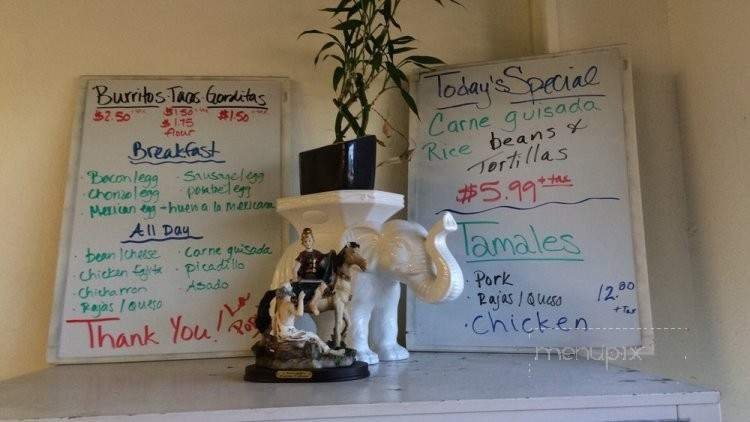 Burritos Tacos Gorditas
$2.50 $1.50 $1.50
$1.75
flour
Breakfast
· Bacon/egg · Sausage/egg
· Chorizo/egg · potatoe/egg
· Mexican egg - huevo a la mexicana
All Day
· bean/cheese · Carne guisada
· Chicken fajita · Picadillo
· Chicharron · Asado
· Rajas/Queso
Thank You! La
Today's Special
Carne guisada
Rice beans &
Tortillas
$5.99 + tax
Tamales
· Pork
· Rajas/Queso 12.00
+ Tax
· Chicken
menupix